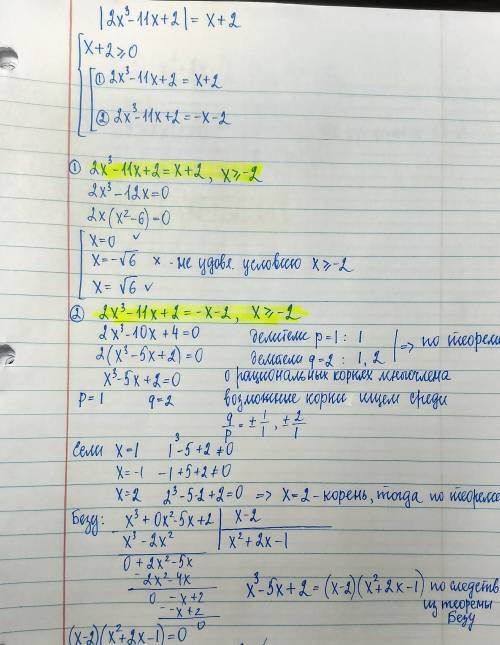 |2x³-11x+2| = x+2
x+2≥0
① 2x³-11x+2 = x+2
② 2x³-11x+2 = -x-2
① 2x³-11x+2 = x+2, x≥-2
2x³-12x=0
2x(x²-6)=0
x=0 ✓
x=-√6 × - не удовл. условию x≥-2
x=√6 ✓
② 2x³-11x+2 = -x-2, x≥-2
2x³-10x+4=0 делители p=1: 1
2(x³-5x+2)=0 делители q=2: 1, 2 | => по теореме
x³-5x+2=0 о рациональных корнях многочлена
p=1 q=2 возможные корни ищем среди
q/p = ±1/1, ±2/1
Если x=1 1³-5+2≠0
x=-1 -1+5+2≠0
x=2 2³-5·2+2=0 => x=2-корень, тогда по теореме
Безу: x³+0x²-5x+2 | x-2
x³-2x² x²+2x-1
0+2x²-5x
2x²-4x x³-5x+2=(x-2)(x²+2x-1) по следств.
0 -x+2 из теоремы
-x+2 Безу
0
(x-2)(x²+2x-1)=0